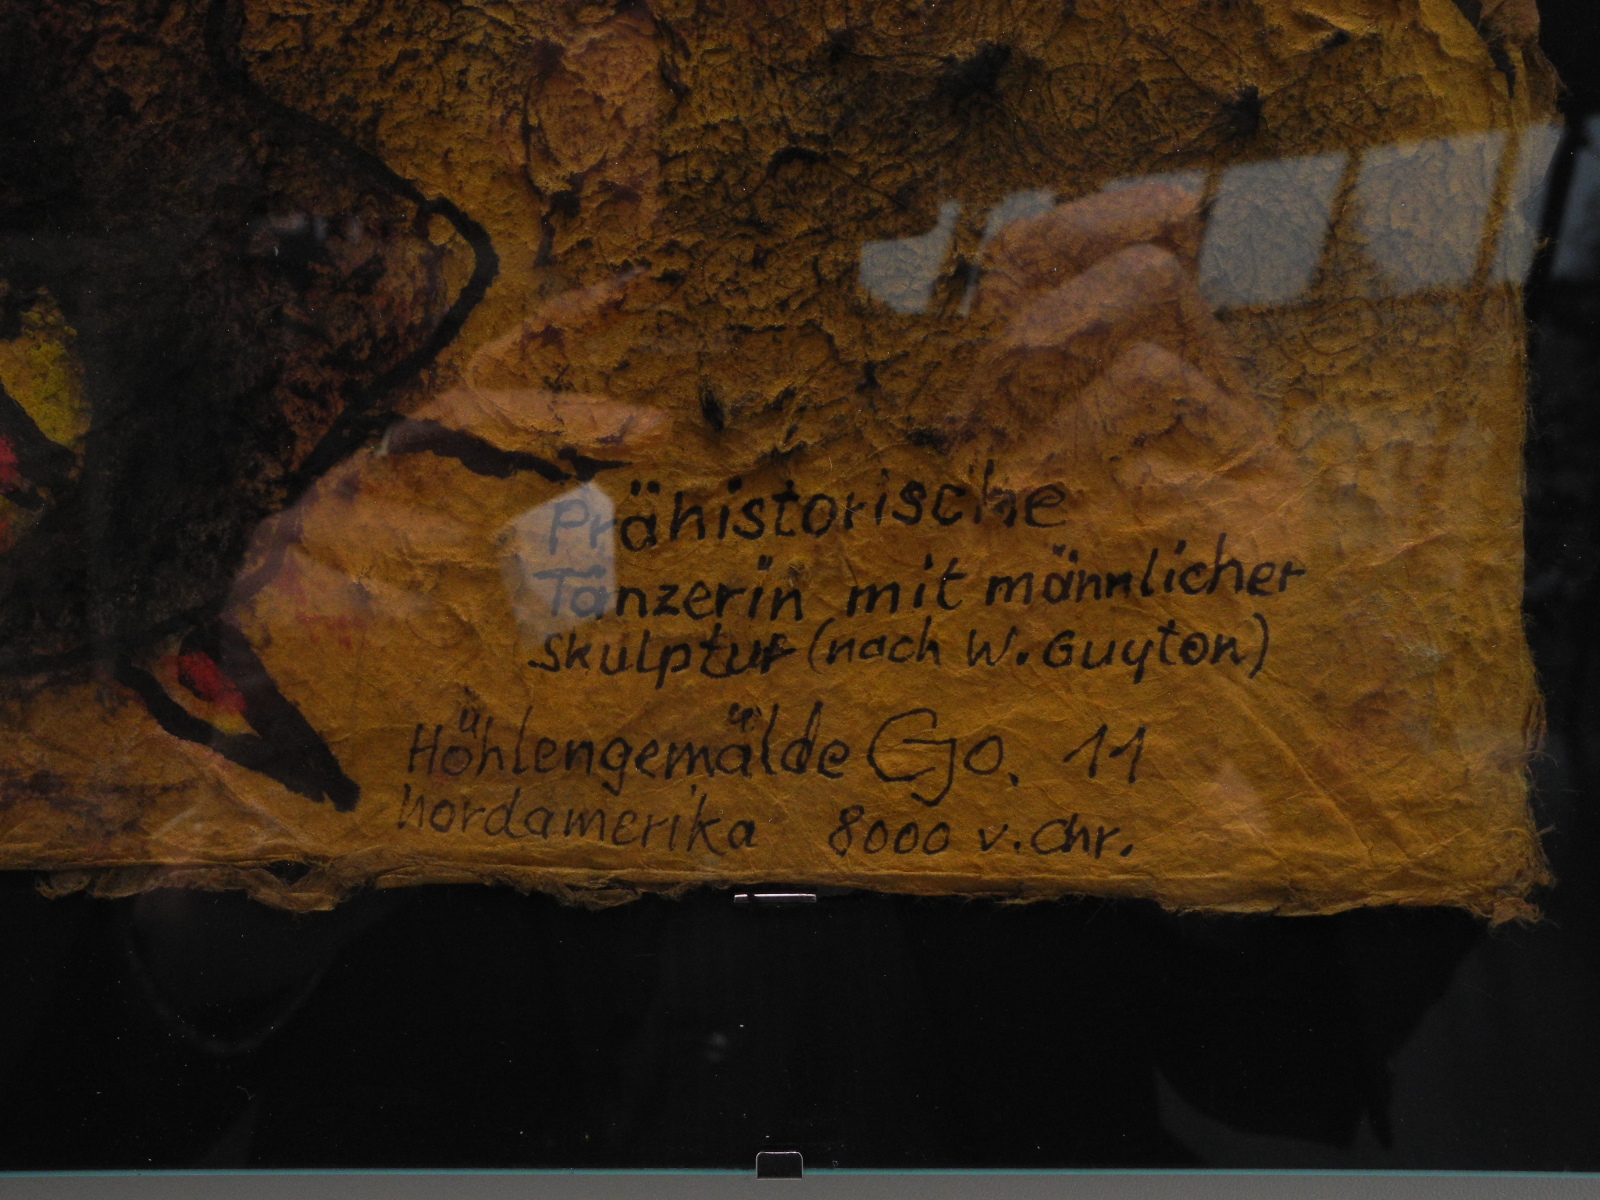 Prähistorische
Tänzerin mit männlicher
Skulptur (nach W. Guyton)
Höhlengemälde Go. 11
Nordamerika 8000 v. Chr.